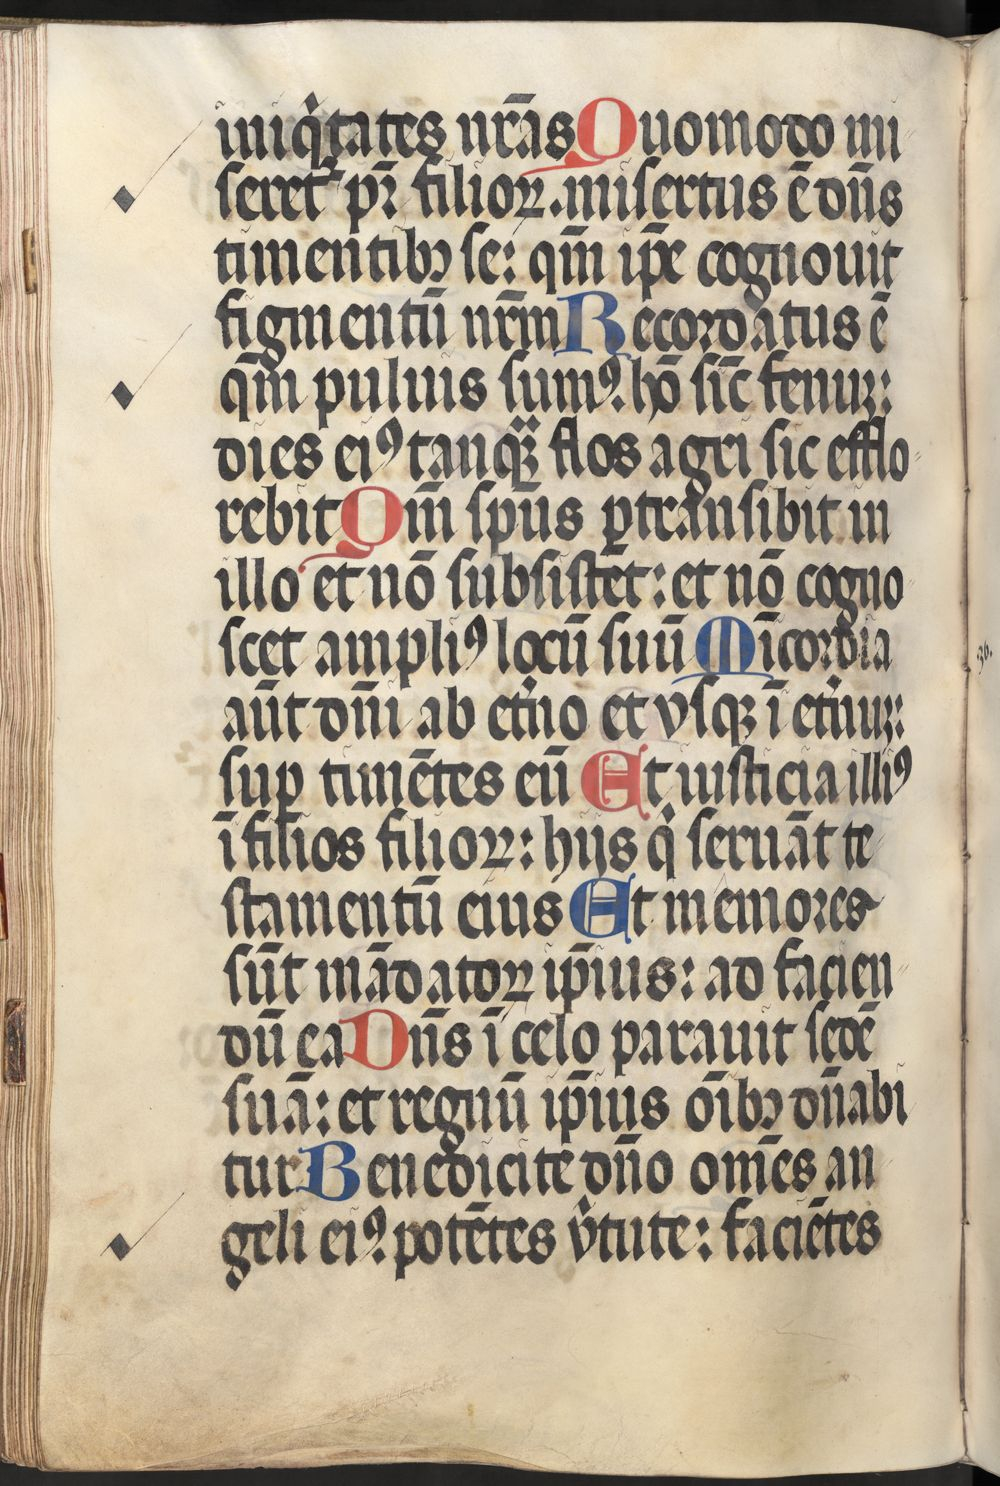 iniq̍tates nr̄as Quomodo mi
seret᷑ pr̄ filioꝝ. misertus ē dn̄s
timentibꝫ se: qm̄ ip̄e cognouit
figmentū nr̄m Recordatus ē
qm̄ puluis sumꝰ. hō sic̄ fenuꝫ:
dies eiꝰ tanqꝫ̈ flos agri sic efflo
rebit Qm̄ sp̄us ꝑtransibit in
illo et nō subsistet: et nō cogno
scet ampliꝰ locū suū Mīcordia
aūt dn̄i ab et̍no et vsqꝫ ī et̍nuꝫ:
sup̱ timētes eū Et iusticia illiꝰ
ī filios filioꝝ: hijs q̍ seruāt te
stamentū eius Et memores
sūt mādatoꝝ ip̄ius: ad facien
dū ea Dn̄s ī celo parauit sedē
suā: et regnū ip̄ius oībꝫ dn̄abi
tur Benedicite dn̄o om̄es an
geli eiꝰ. potētes v̍tute: faciētes
36.